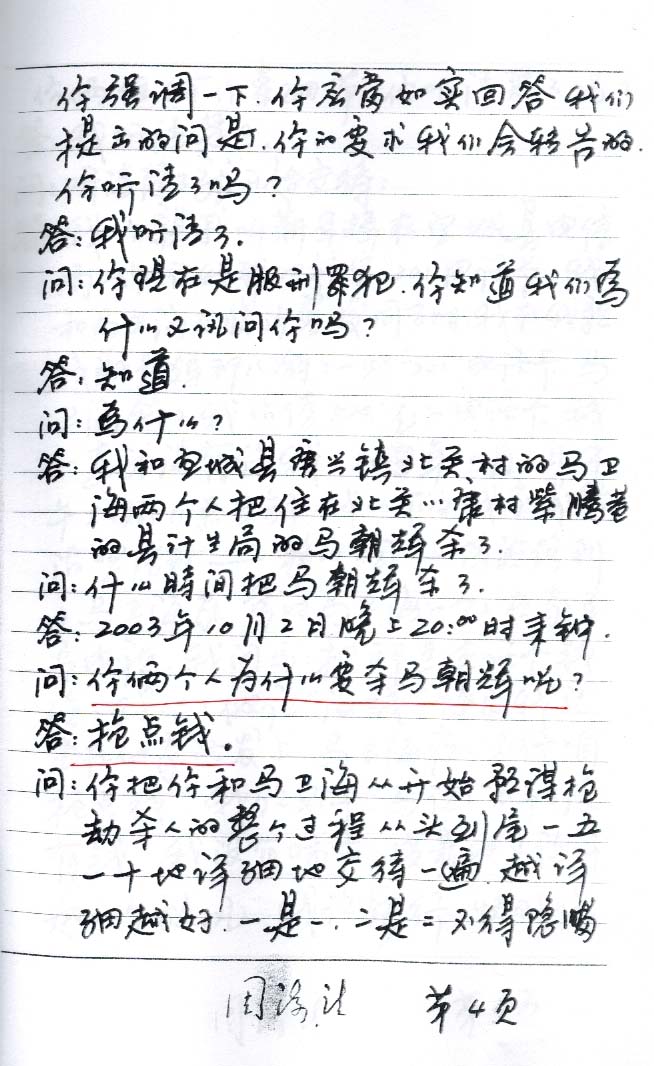 你强调一下.你应当如实回答我们
提出的问题.你的要求我们会转告的.
你听清了吗？
答：我听清了.
问：你现在是服刑罪犯.你知道我们爲
什么又讯问你吗？
答：知道.
问：爲什么？
答：我和 城县 兴镇北关村的马卫
海两个人把住在北关 村紫腾巷
的县计生局的马朝辉杀了.
问：什么時间把马朝辉杀了.
答：2003年10月2日晚上20:00时来钟.
问：你俩个人为什么要杀马朝辉呢？
答：抢点钱。
问：你把你和马卫海从开始预谋抢
劫杀人的整个过程从头到尾一五
一十地详细地交待一遍.越详
细越好.一是一.二是二不得隐瞒
周 第4页